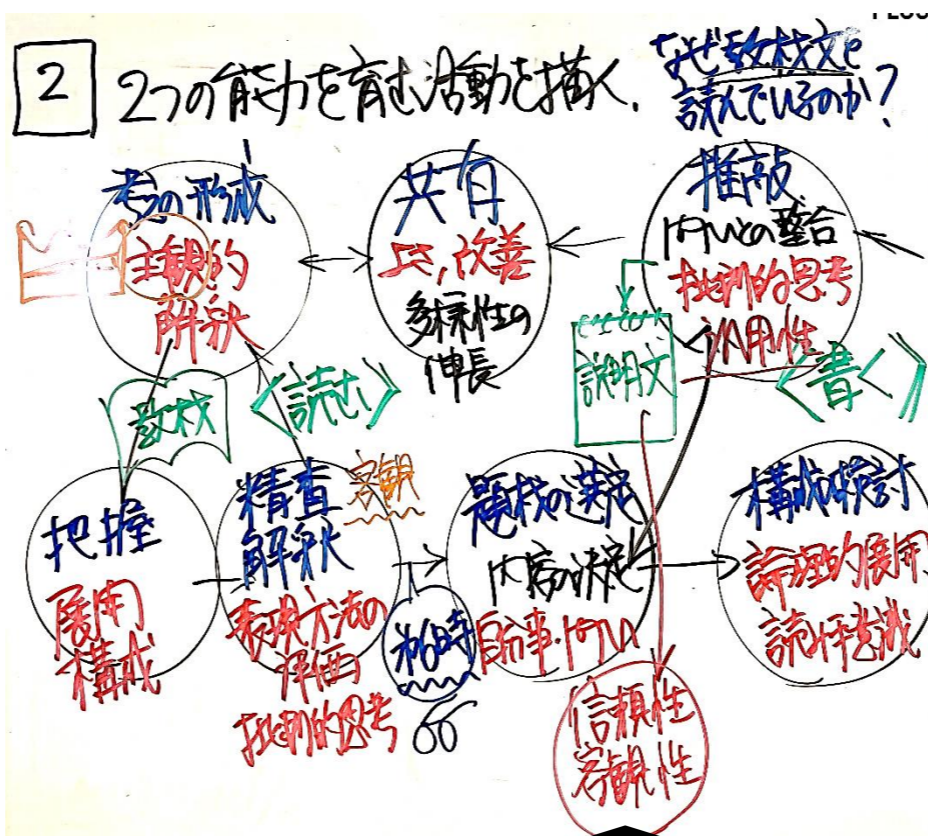 2
2つの能力を育む活動を描く.
なぜ教材文を
読んでいるのか?
考えの形成
主観的
解釈
共有
よさ,改善
多様性の
伸長
推敲
ねらいとの整合
批判的思考
汎用性
説明文
教材
〈読む〉
〈書く〉
把握
展開
構成
精査
解釈
客観
表現方法の
評価
批判的思考
題材の選定
内容の決定
自分事・ねらい
構成の検討
論理的展開
読み手意識
信頼性
客観性